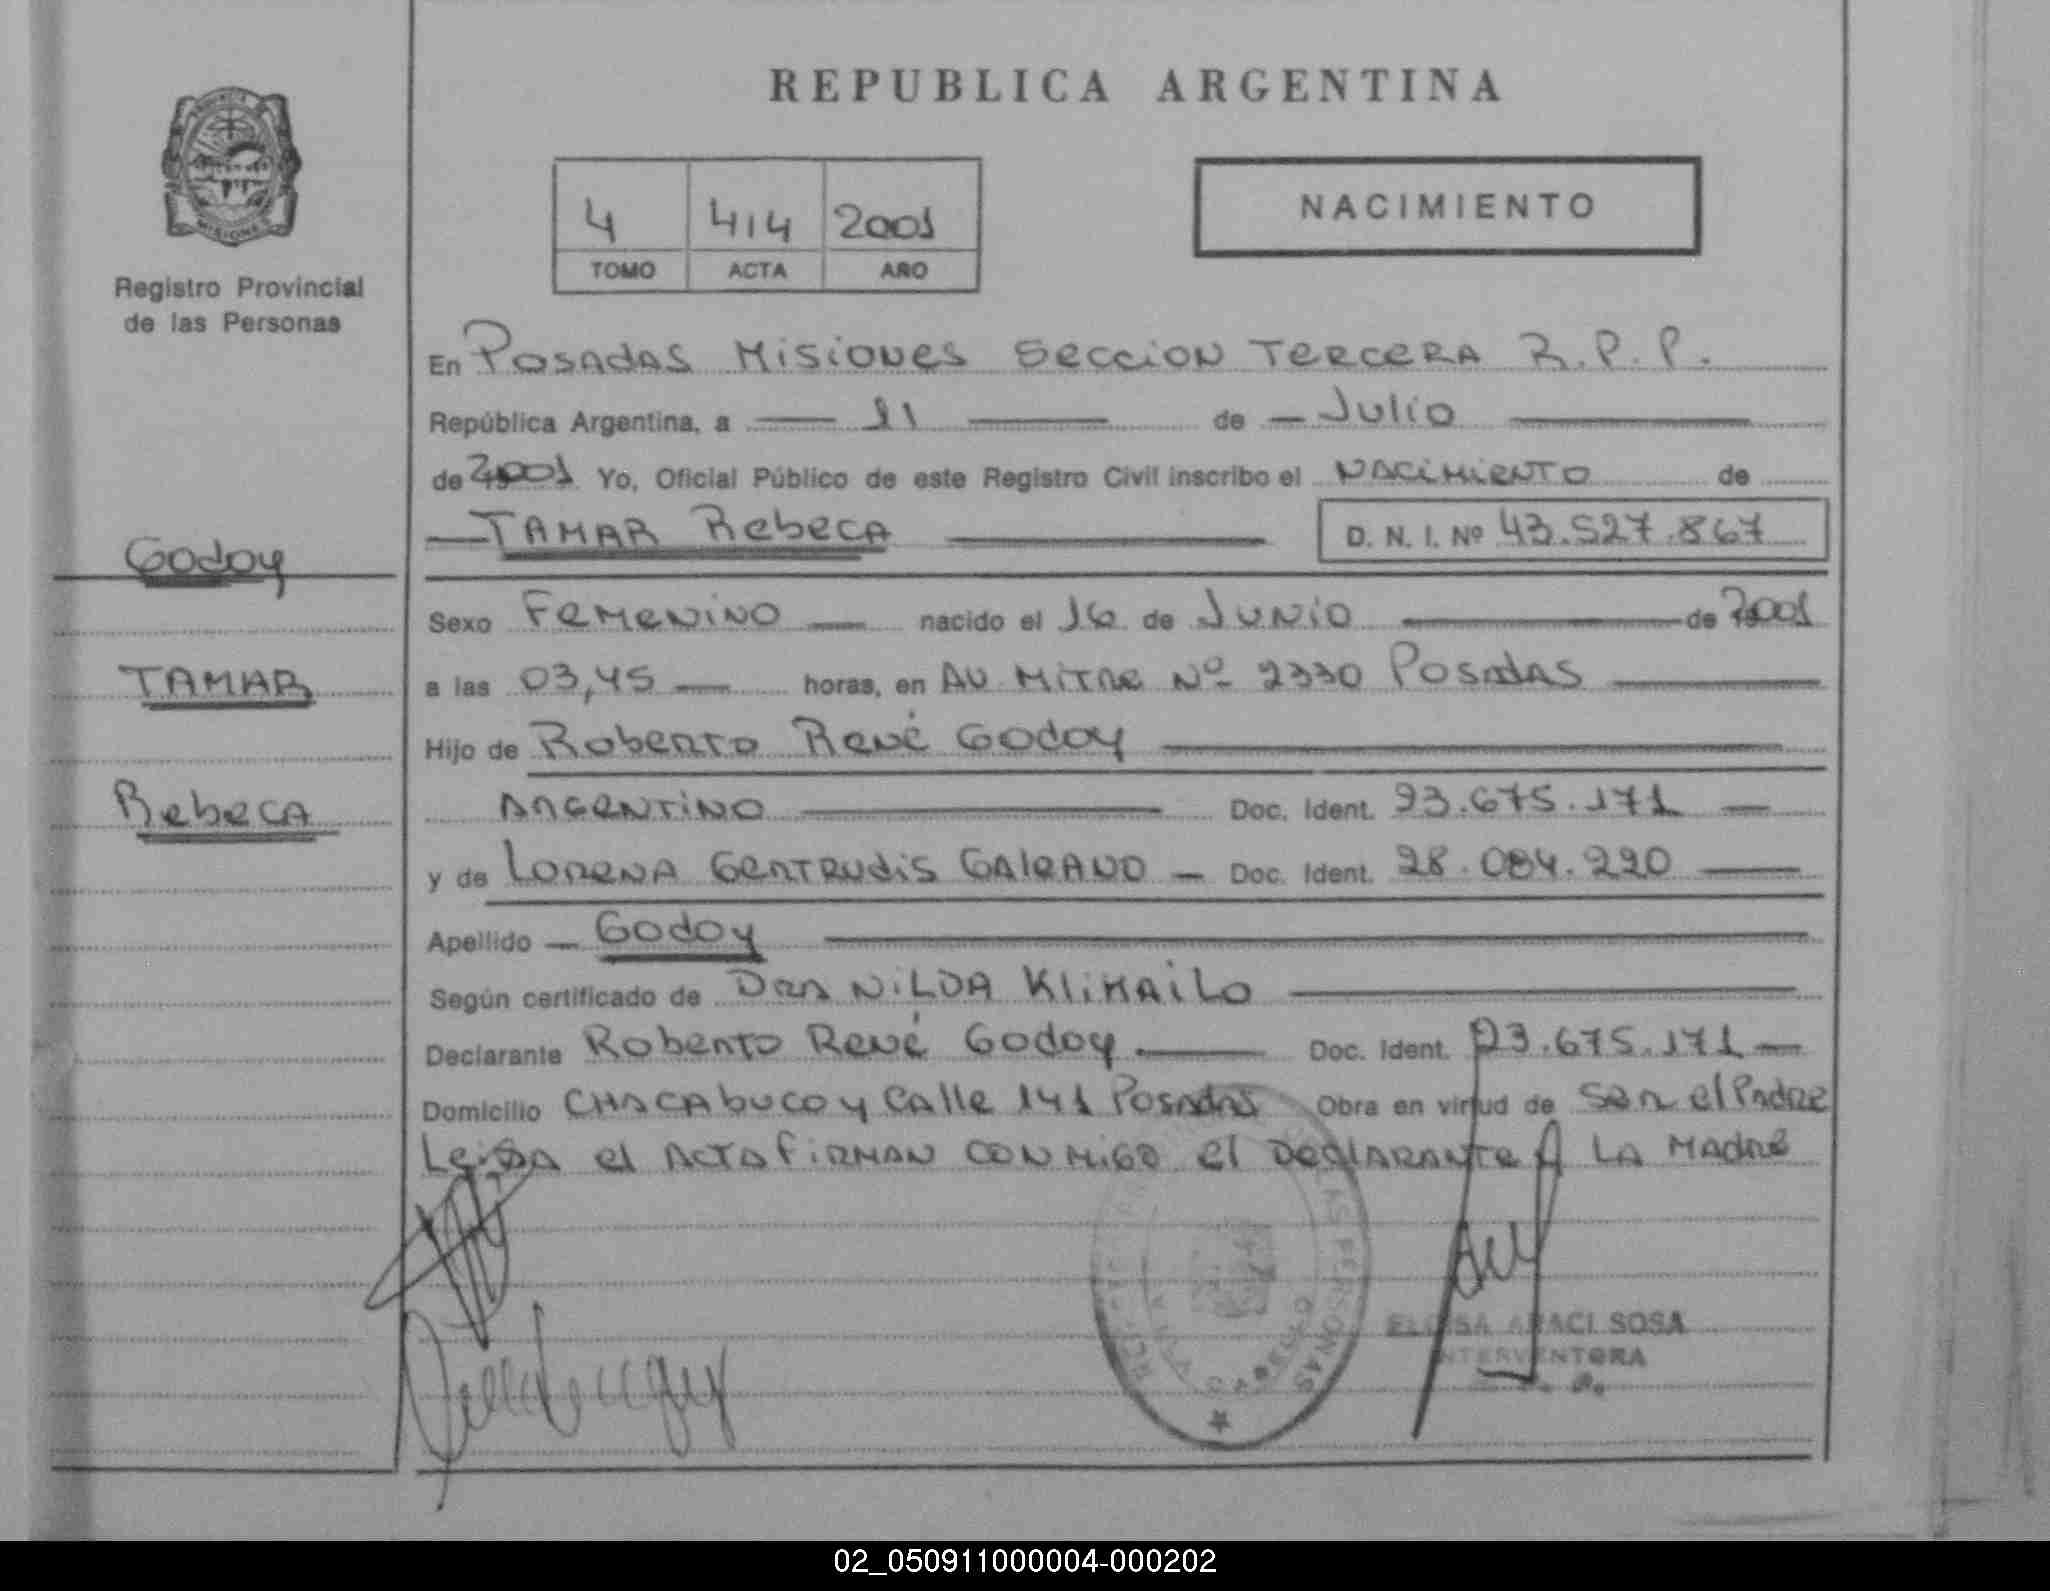 REPUBLICA ARGENTINA
PROVINCIA
MISIONES
Registro Provincial
de las Personas
4 414 2001
TOMO ACTA AÑO
NACIMIENTO
En Posadas Misiones Seccion Tercera R.P.P.
República Argentina, a 11 de Julio
de 2001 Yo, Oficial Público de este Registro Civil inscribo el Nacimiento de
TAMAR Rebeca D. N. I. Nº 43.527.867
Godoy
TAMAR
Rebeca
Sexo Femenino nacido el 16 de Junio de 2001
a las 03,45 horas, en Av Mitre Nº 2330 Posadas
Hijo de Roberto René Godoy
Argentino Doc. Ident. 23.675.171
y de Lorena Gertrudis Galeano Doc. Ident. 28.084.220
Apellido Godoy
Según certificado de Dra Nilda Klimailo
Declarante Roberto René Godoy Doc. Ident. 23.675.171
Domicilio Chacabuco y Calle 141 Posadas Obra en virtud de Ser el Padre
Leida el Acta firman conmigo el Declarante y la Madre
LAS PERSONAS
ELOISA ARACI SOSA
INTERVENTORA
02_050911000004-000202